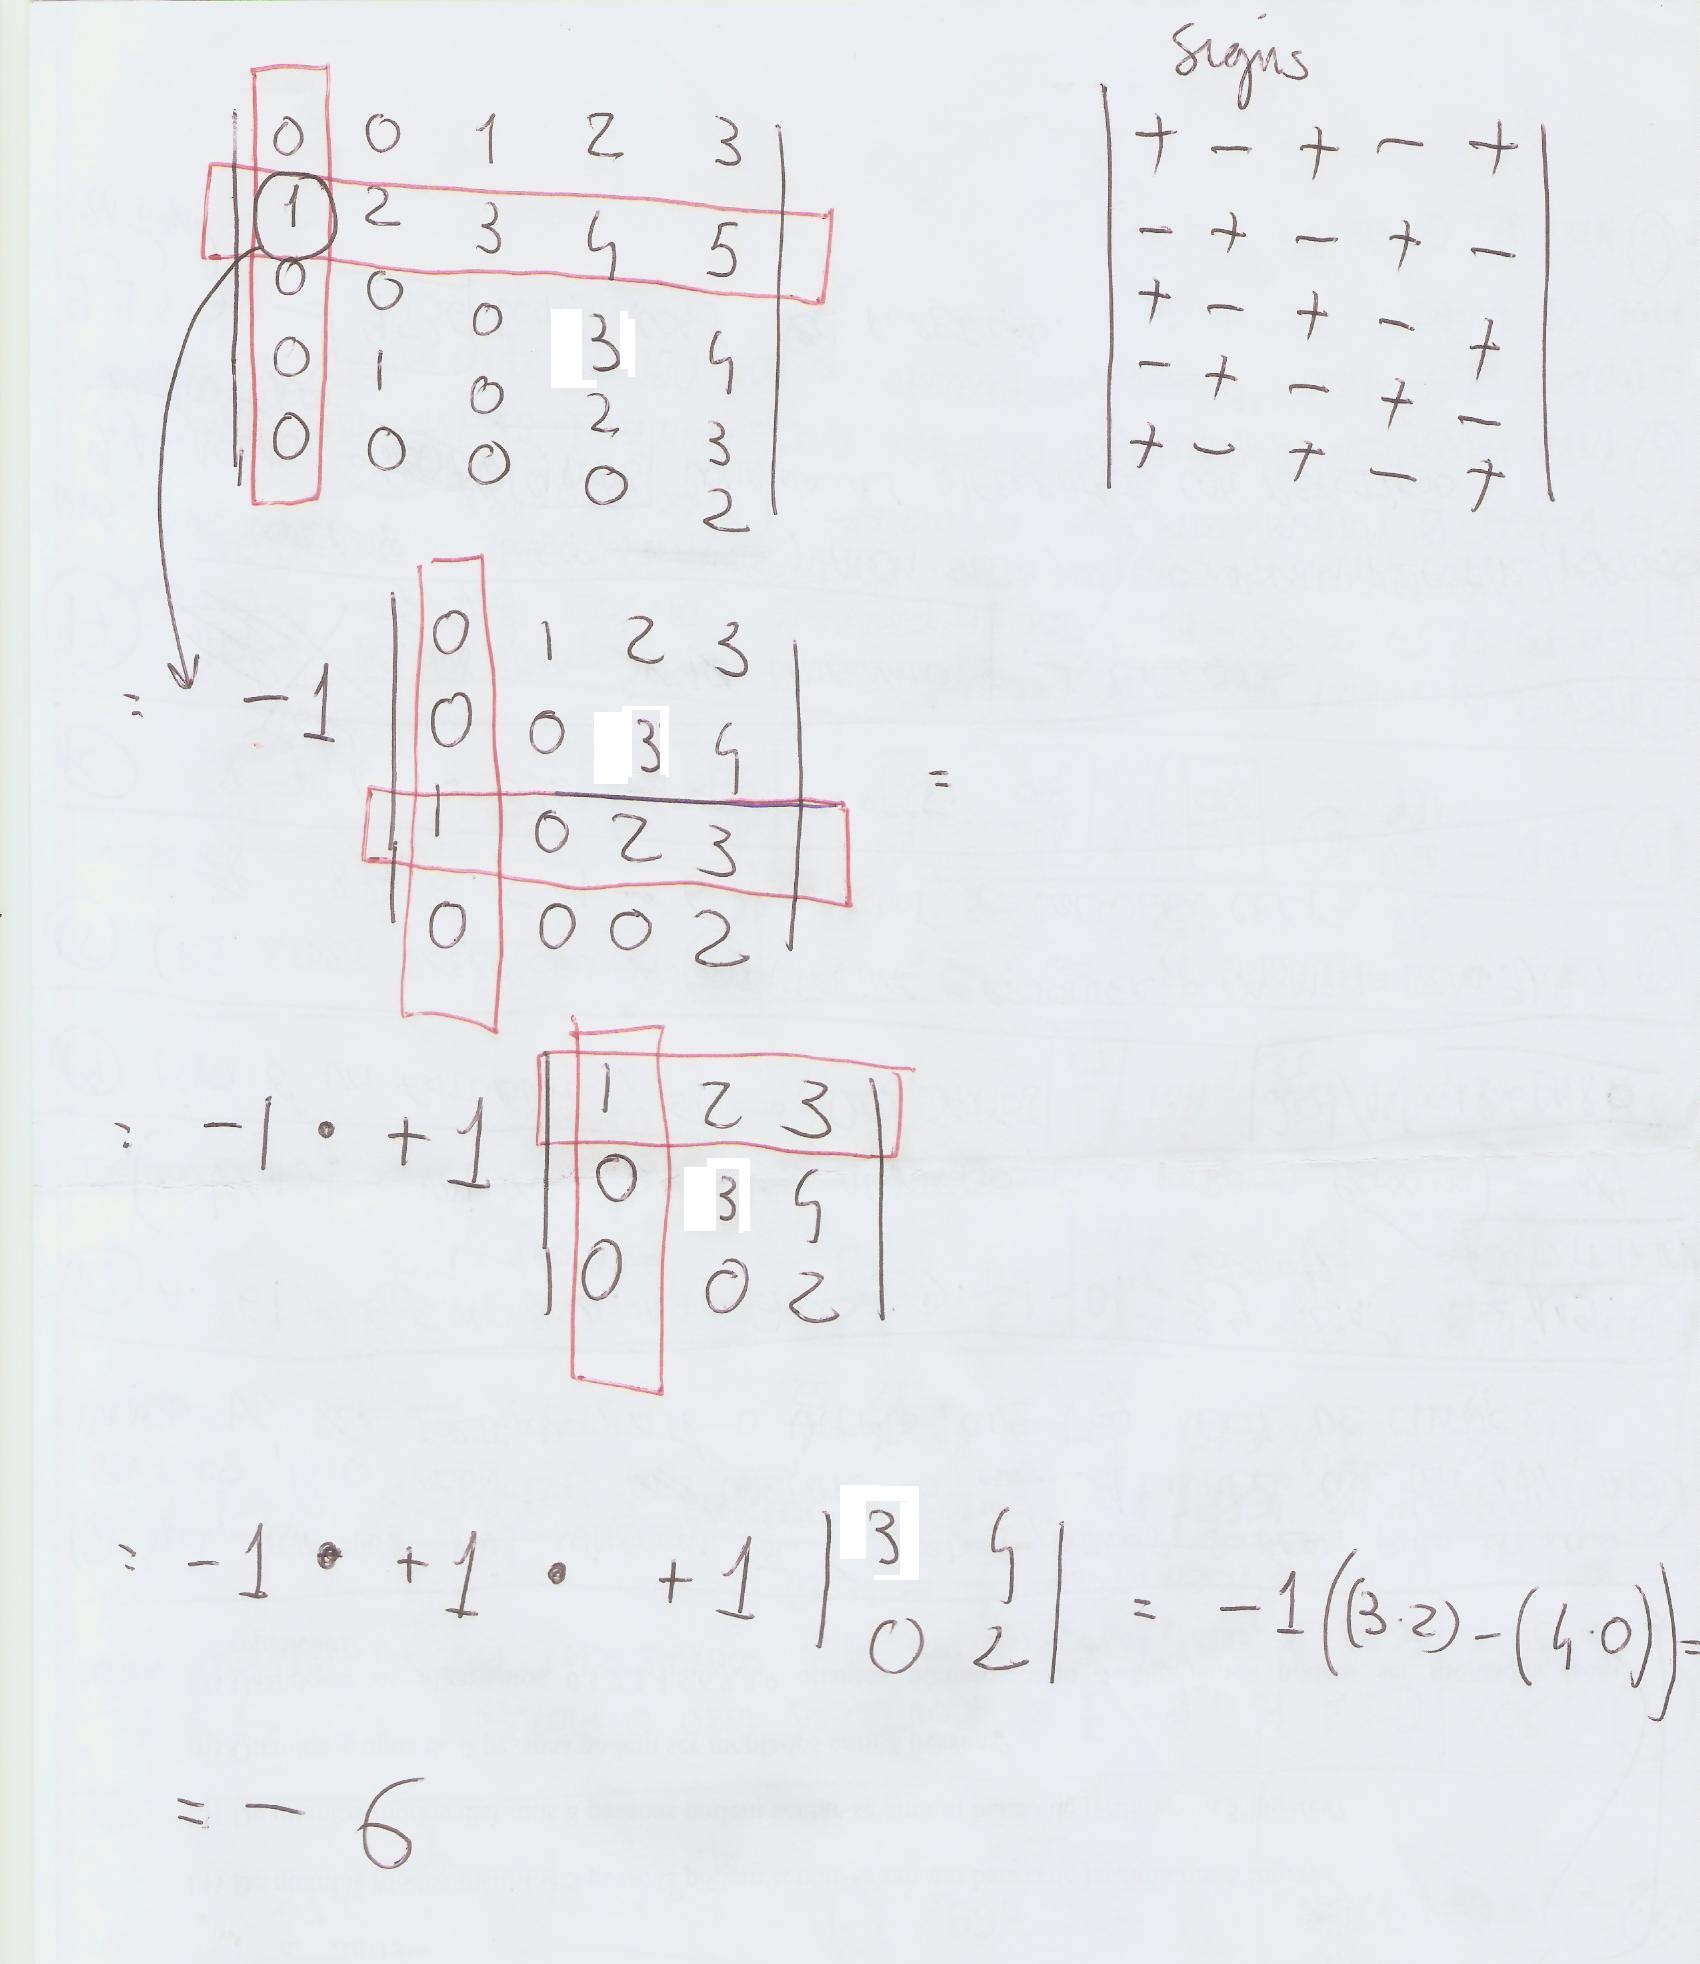 Signs
0 0 1 2 3
1 2 3 4 5
0 0 0 3 4
0 1 0 2 3
0 0 0 0 2
+ - + - +
- + - + -
+ - + - +
- + - + -
+ - + - +
= -1 | 0 1 2 3 | =
0 0 3 4
1 0 2 3
0 0 0 2
= -1 • +1 | 1 2 3 |
0 3 4
0 0 2
= -1 • +1 • +1 | 3 4 | = -1((3·2)-(4·0))=
0 2
= - 6